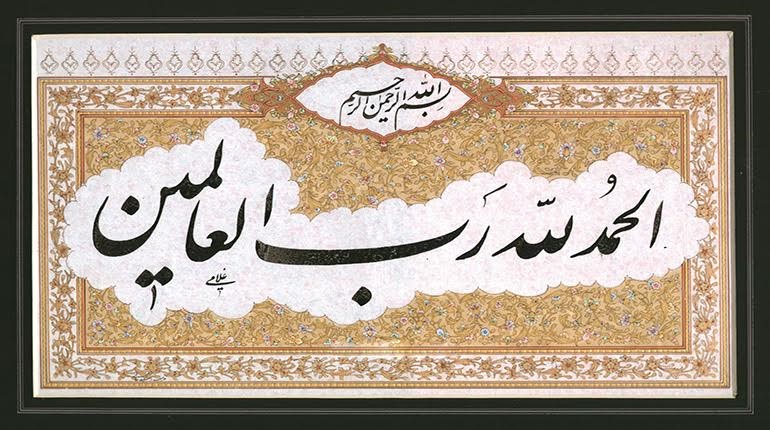 بسم الله الرحمن الرحيم
الحمدُ لله رَب العالمين
غلامی